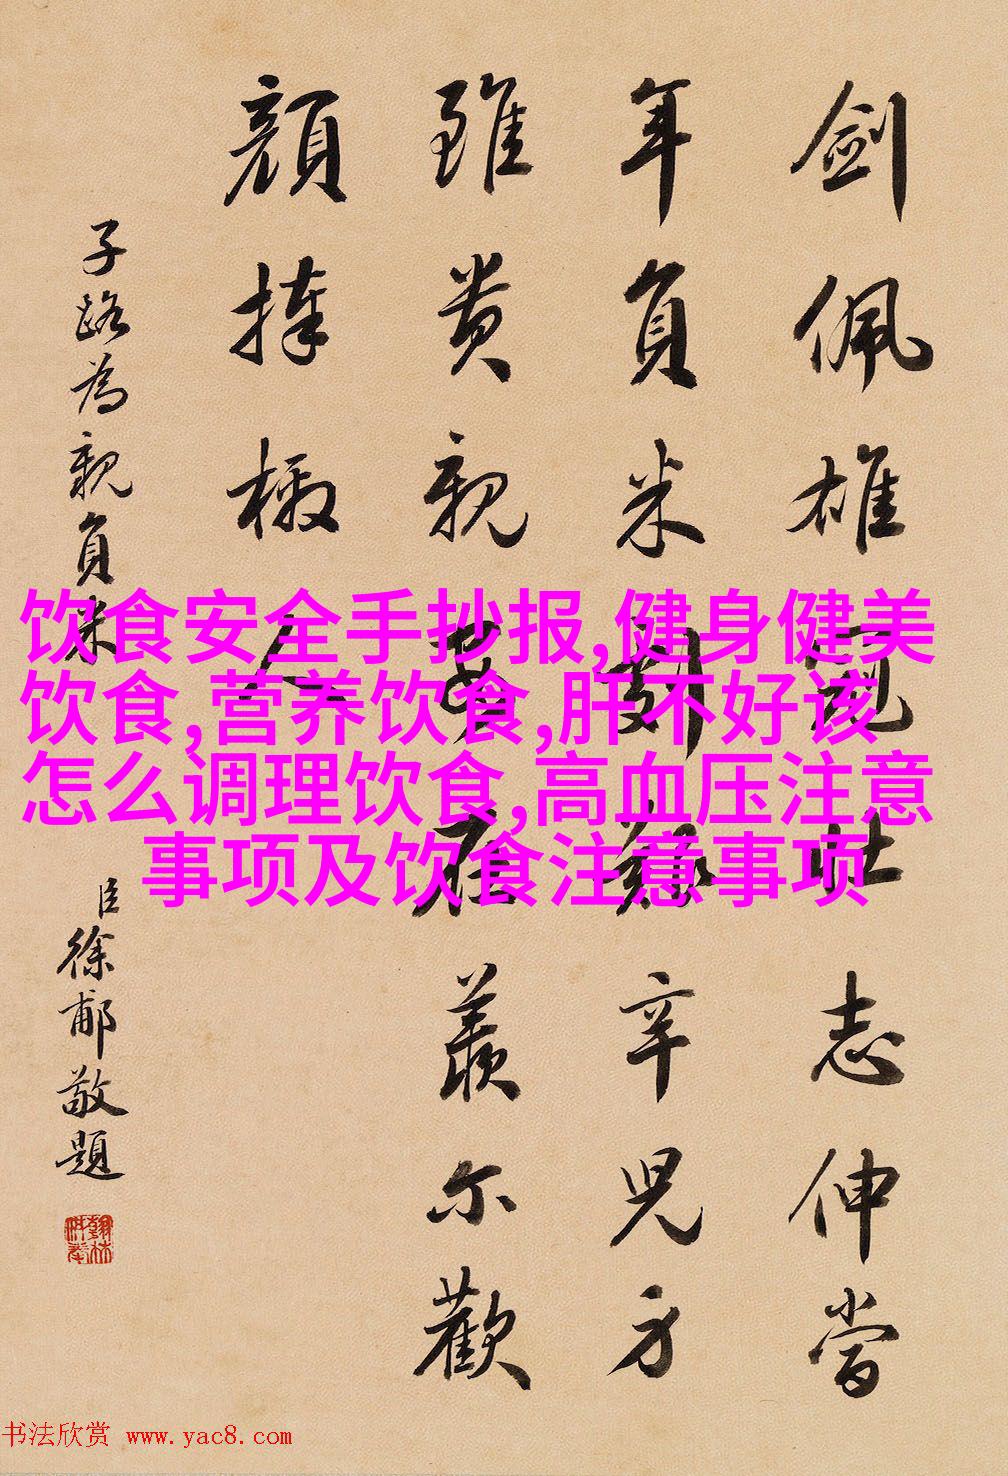 剑佩雄冠壮志伸当
年負米歎艱辛児方
雖贵親安在羡尔歡
顔捧檄人
子路為親負米
臣徐郙敬題
饮食安全手抄报,健身健美
饮食,营养饮食,肝不好该
怎么调理饮食,高血压注意
事项及饮食注意事项
书法欣赏 www.yac8.com